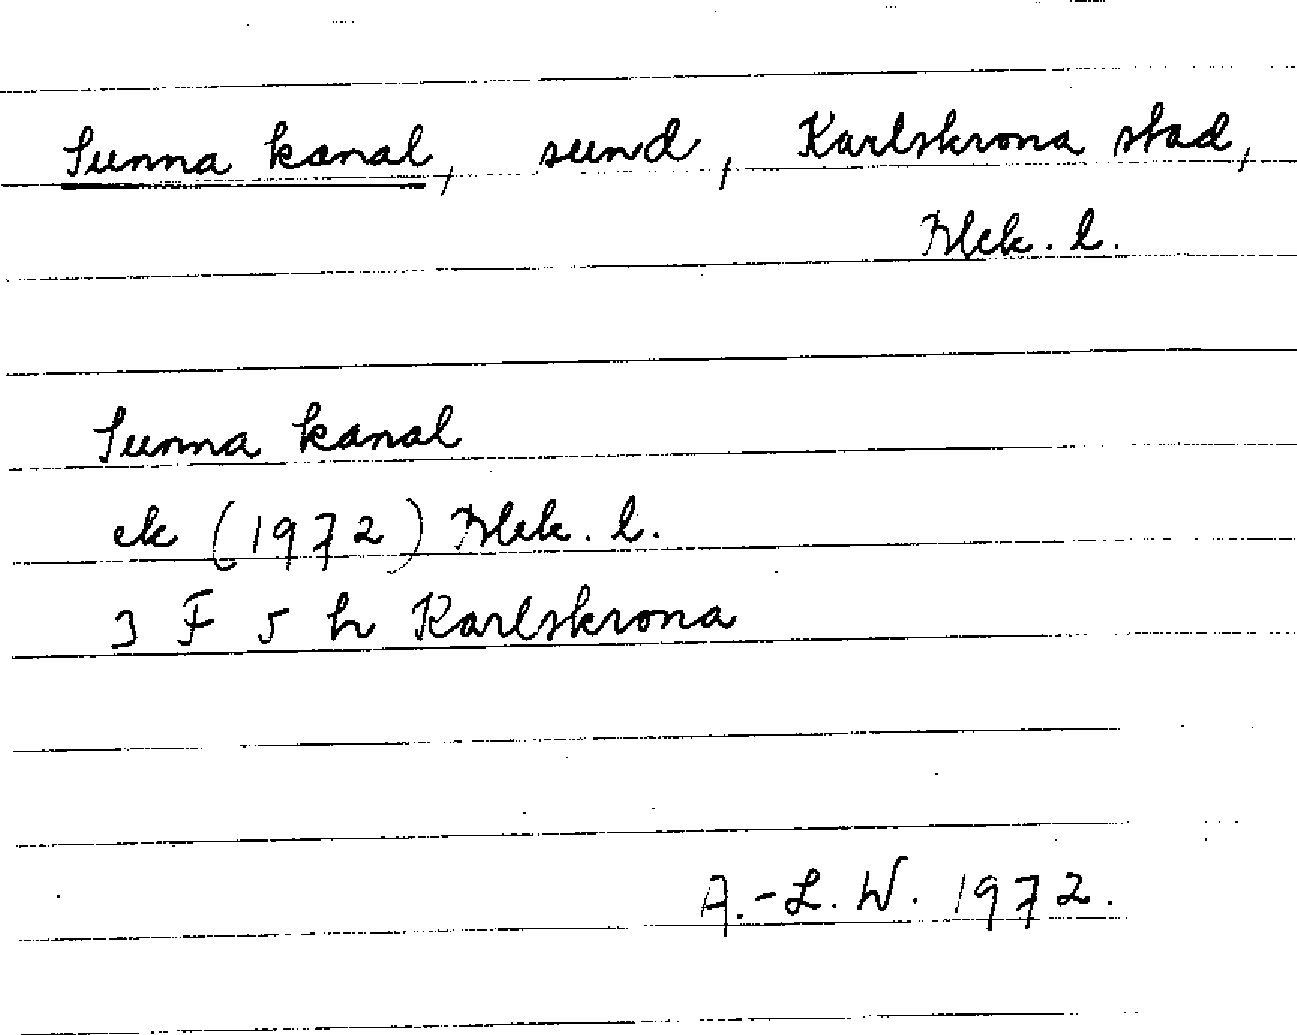 Sunna kanal, sund, Karlskrona stad,
Blek. l.
Sunna kanal
ek (1972) Blek. l.
3 F 5 h Karlskrona
A.-L. W. 1972.